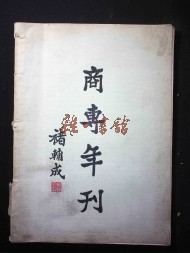 商專年刊
褚輔成